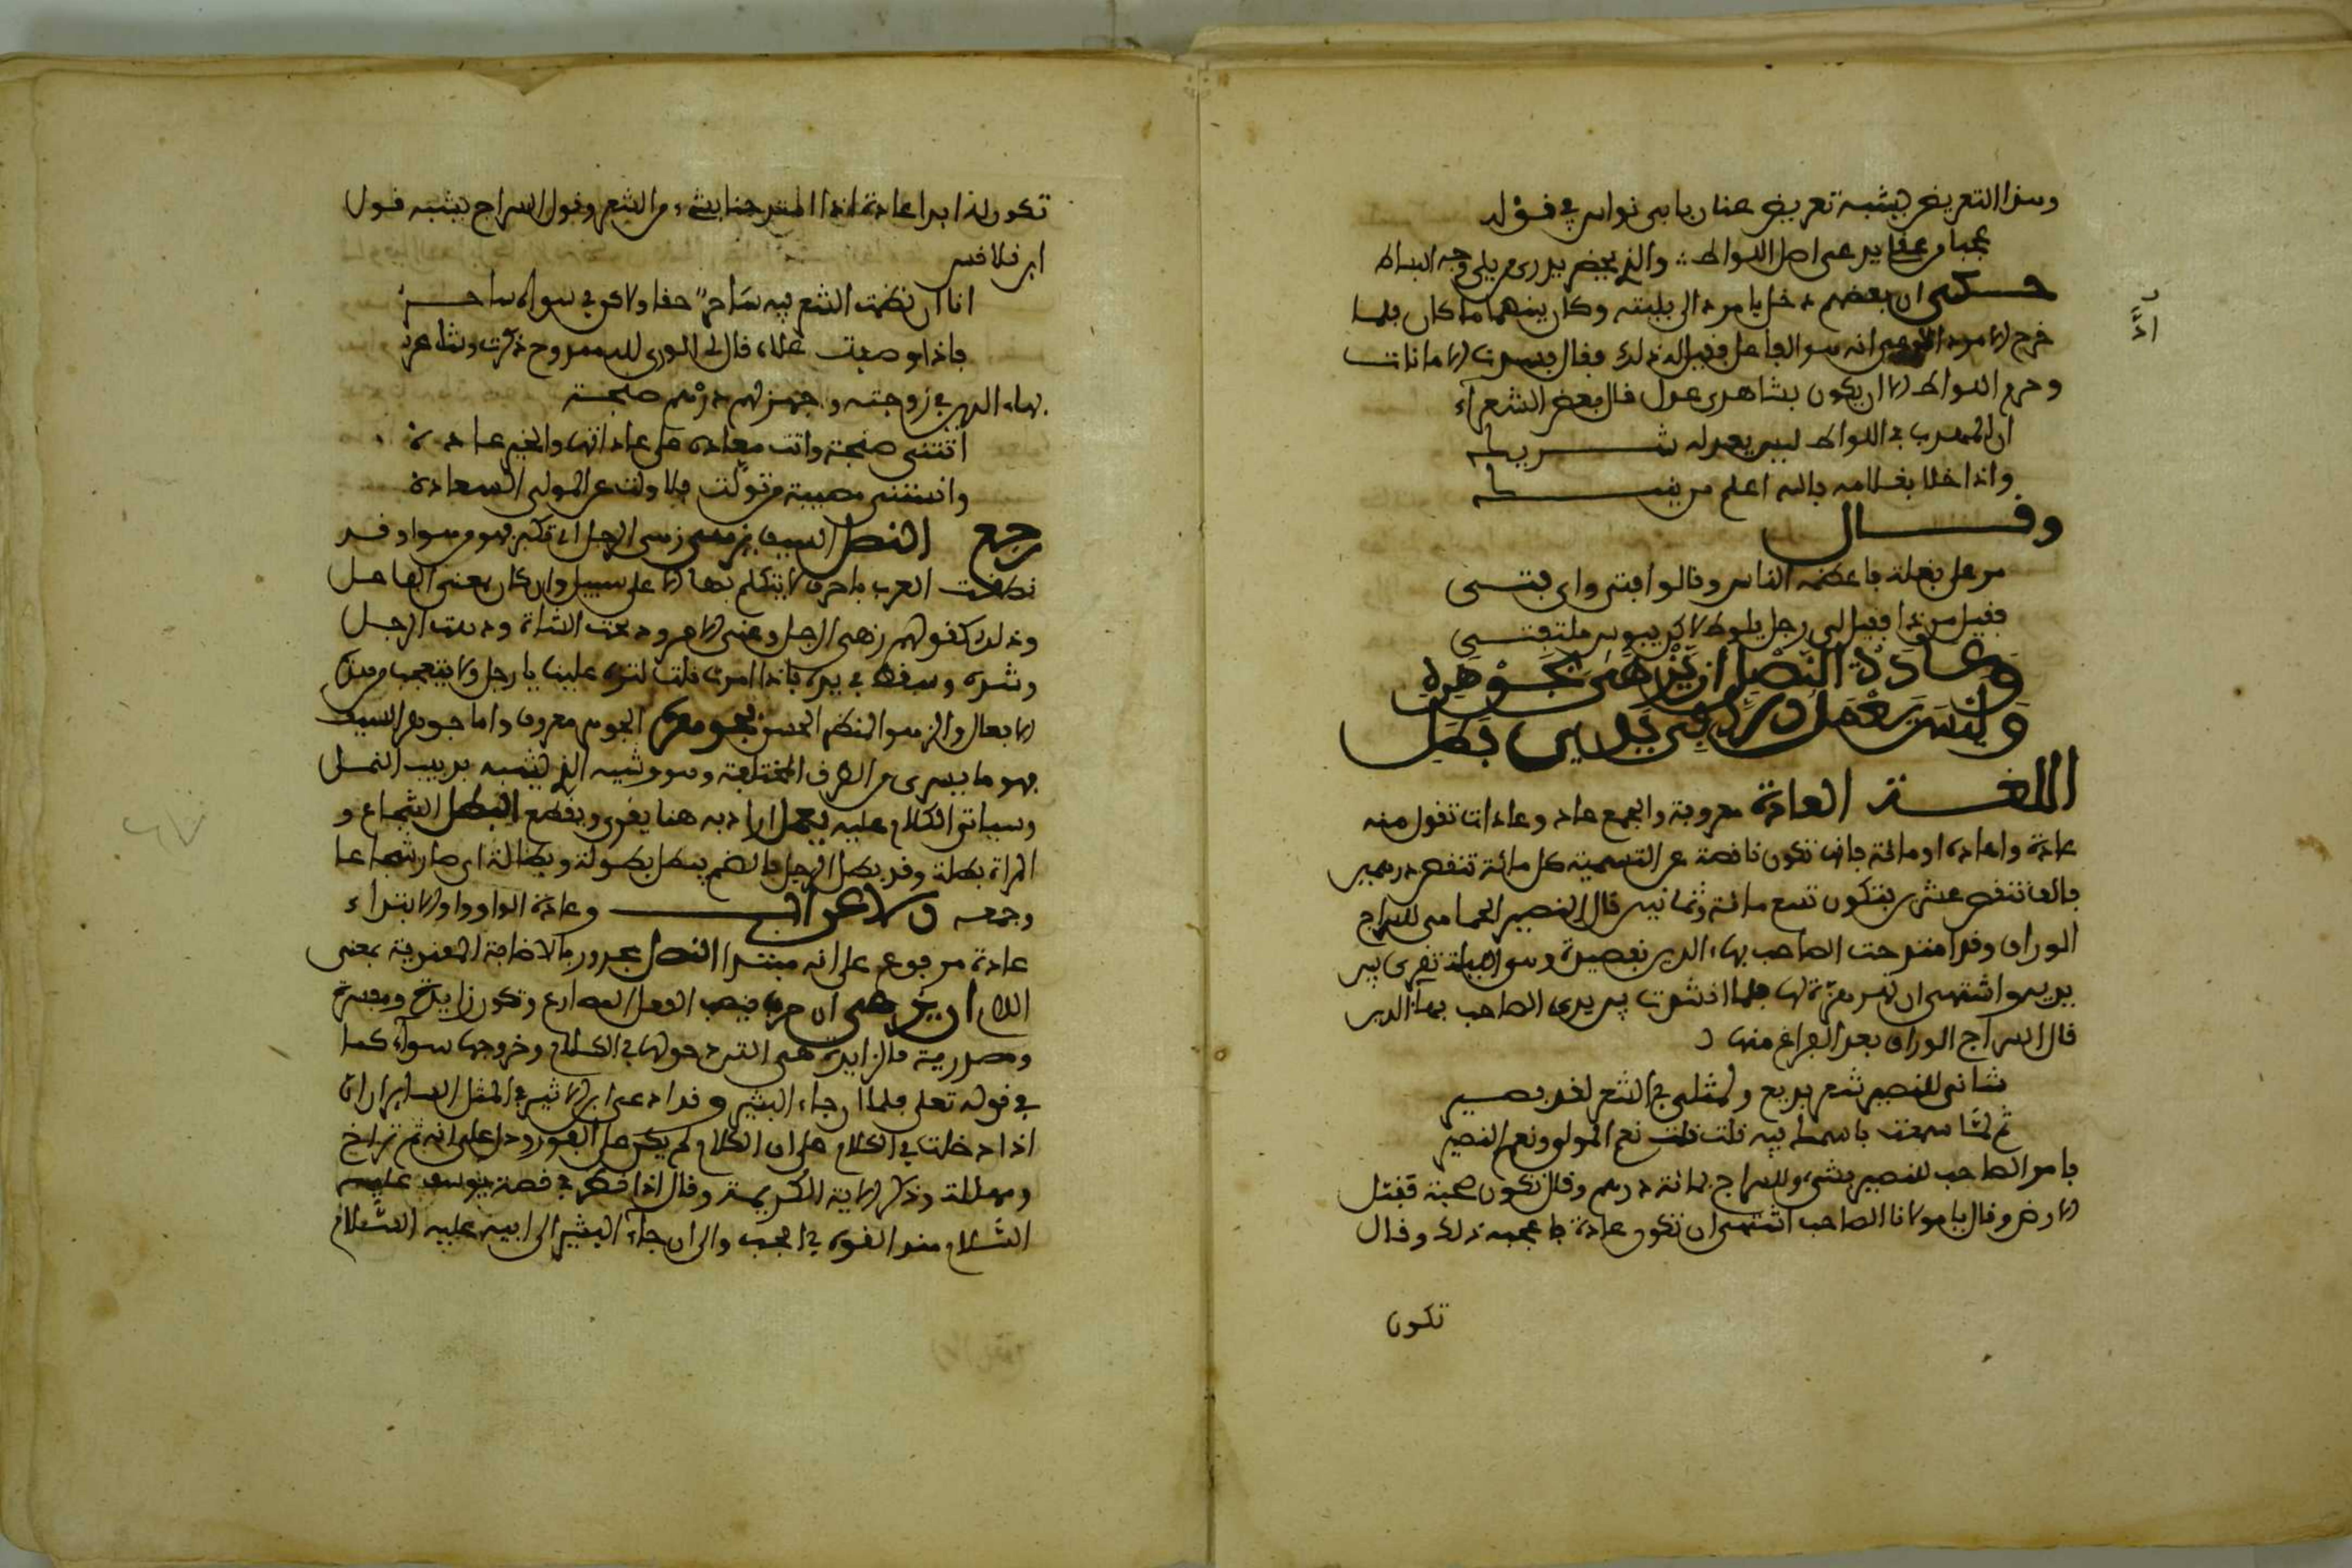 وهذا التعريض يشبه تعريض عنان بابي نواس في قوله
عجبا من عقابه على اهل اللواط والذي يجضر يدرى من يلى وجه البساط
حكى ان بعضهم دخل بامرد الى بيته وكان بينهما ما كان فلما
خرج الامرد ادعى انه هو الفاعل فقيل له ذلك فقال فسدت الامانات
وحرم اللواط الا ان يكون بشاهدى عدل قال بعض الشعراء
ان المهذب في اللواط ليس يعدله شريطه
واذا خلا بغلامه فالله اعلم من
وقال
مر على بغلة فاعظمه الناس وقالوا افتى واى فتى
فقيل من ذا فقيل لى رجل يلوط لاكن
وَعَادَةُ النَّصْلِ أن يُزْهَى بجَوْهَرِهِ
وَلَيْسَ يَعْمَلُ الّا في يَدَيْ بَطَلِ
اللغة العادة معروفة والجمع عاد وعادات تقول منه
عادة واعاده او مائة فانها تكون ناقصة عن التسمية كل مائة تنقص درهمين
فالف تنقص عشرين فتكون تسع مائة وثمانين قال النصير الحمامى للسراج
الوراق وقد امتدحت الصاحب بهاء الدين بقصيدة وهو الليلة تقرى بين
يديه واشتهى ان تهيء لها فلما انشدت بين يدى الصاحب بهاء الدين
قال السراج الوراق بعد الفراغ منها
شاقنى للنصير شعر بديع ولمثلى في الشعر نقد بصير
ثم لمّا سمعت باسمك فيه قلت نعم المولى ونعم النصير
فامر الصاحب للنصير بشىء وللسراج بمائة درهم وقال تكون صحبة فقبل
الارض وقال يا مولانا الصاحب اشتهى ان تكون عادة فاعجبه ذلك وقال
تكون
تكون لك ابدا عادة اذا امتدحنا بشىء من الشعر وقول السراج يشبه قول
ابن قلاقس
انا ان نظمت الشعر فيه ساحر حقا ولاكن في سواه ساحر
فاذا وصفت علاه قال لى الورى لله ممدوح ذكرت وشاعر
بهاء الدين في زوجته واجهز لهم درهم صنجة
اتتنى صنجة واتت معاده على عاداتها والخير عاده
وانستنى مصيبة من تولّت فلا ولت عن المولى السعادة
رجع النصل السيف يزهى زهى الرجل اى تكبر فهو مزهو وقد
نطقت العرب باحرف لا يتكلم بها الا على سبيل وان كان بمعنى الفاعل
وذلك كقولهم زهى الرجل وعنى الامر ونتجت الشاة
وشبهه وسقط في يده فاذا امرت قلت لتزه علينا يا رجل ولا يتعجب منه
الا بفعال والزهو المنظر الحسن بجوهره الجوهر معروف واما جوهر السيف
فهو ما يسرى من الطرف المختلفة وهو وشيه الذى يشبه بدبيب النمل
وسياتى الكلام عليه يعمل اراد به هنا يفرى ويقطع البطل الشجاع و
المراة بطلة وقد بطل الرجل بالضم يبطل بطولة وبطالة اى صار شجاعا
وجمعه الاعراب وعادة الواو واو الابتداء
عادة مرفوع على انه مبتدا النصل مجرور بالاضافة المعنوية بمعنى
اللام ان يزهى ان حرف ينصب الفعل المضارع وتكون زايدة ومفسرة
ومصدرية فالزايدة هى التى دخولها في الكلام وخروجها سواء كما
في قوله تعلى فلما ان جاء البشير وقد ادعى ابن الاثير في المثل الساير ان ان
اذا دخلت في الكلام على ان الكلام لم يكن على الفور ودل على انه ثم تراخ
ومهلة وذكر الاية الكريمة وقال اذا فكر في قصة يوسف عليه
السّلام منذ القوه في الجب والى ان جاء البشير الى ابيه عليه السّلام